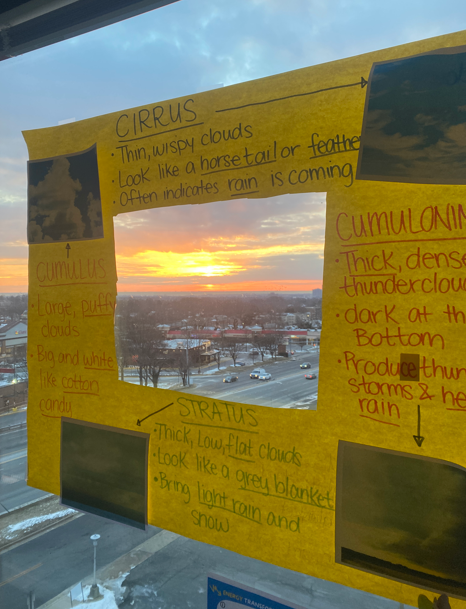 CIRRUS
• Thin, wispy clouds
• Look like a horsetail or feathe
• Often indicates rain is coming
CUMULUS
• Large, puffy
clouds
• Big and white
like cotton
candy
CUMULONIM
• Thick, dense
thunderclou
• dark at th
Bottom
• Produce thun
storms & he
rain
STRATUS
• Thick, Low, flat clouds
• Look like a grey blanket
• Bring light rain and
snow